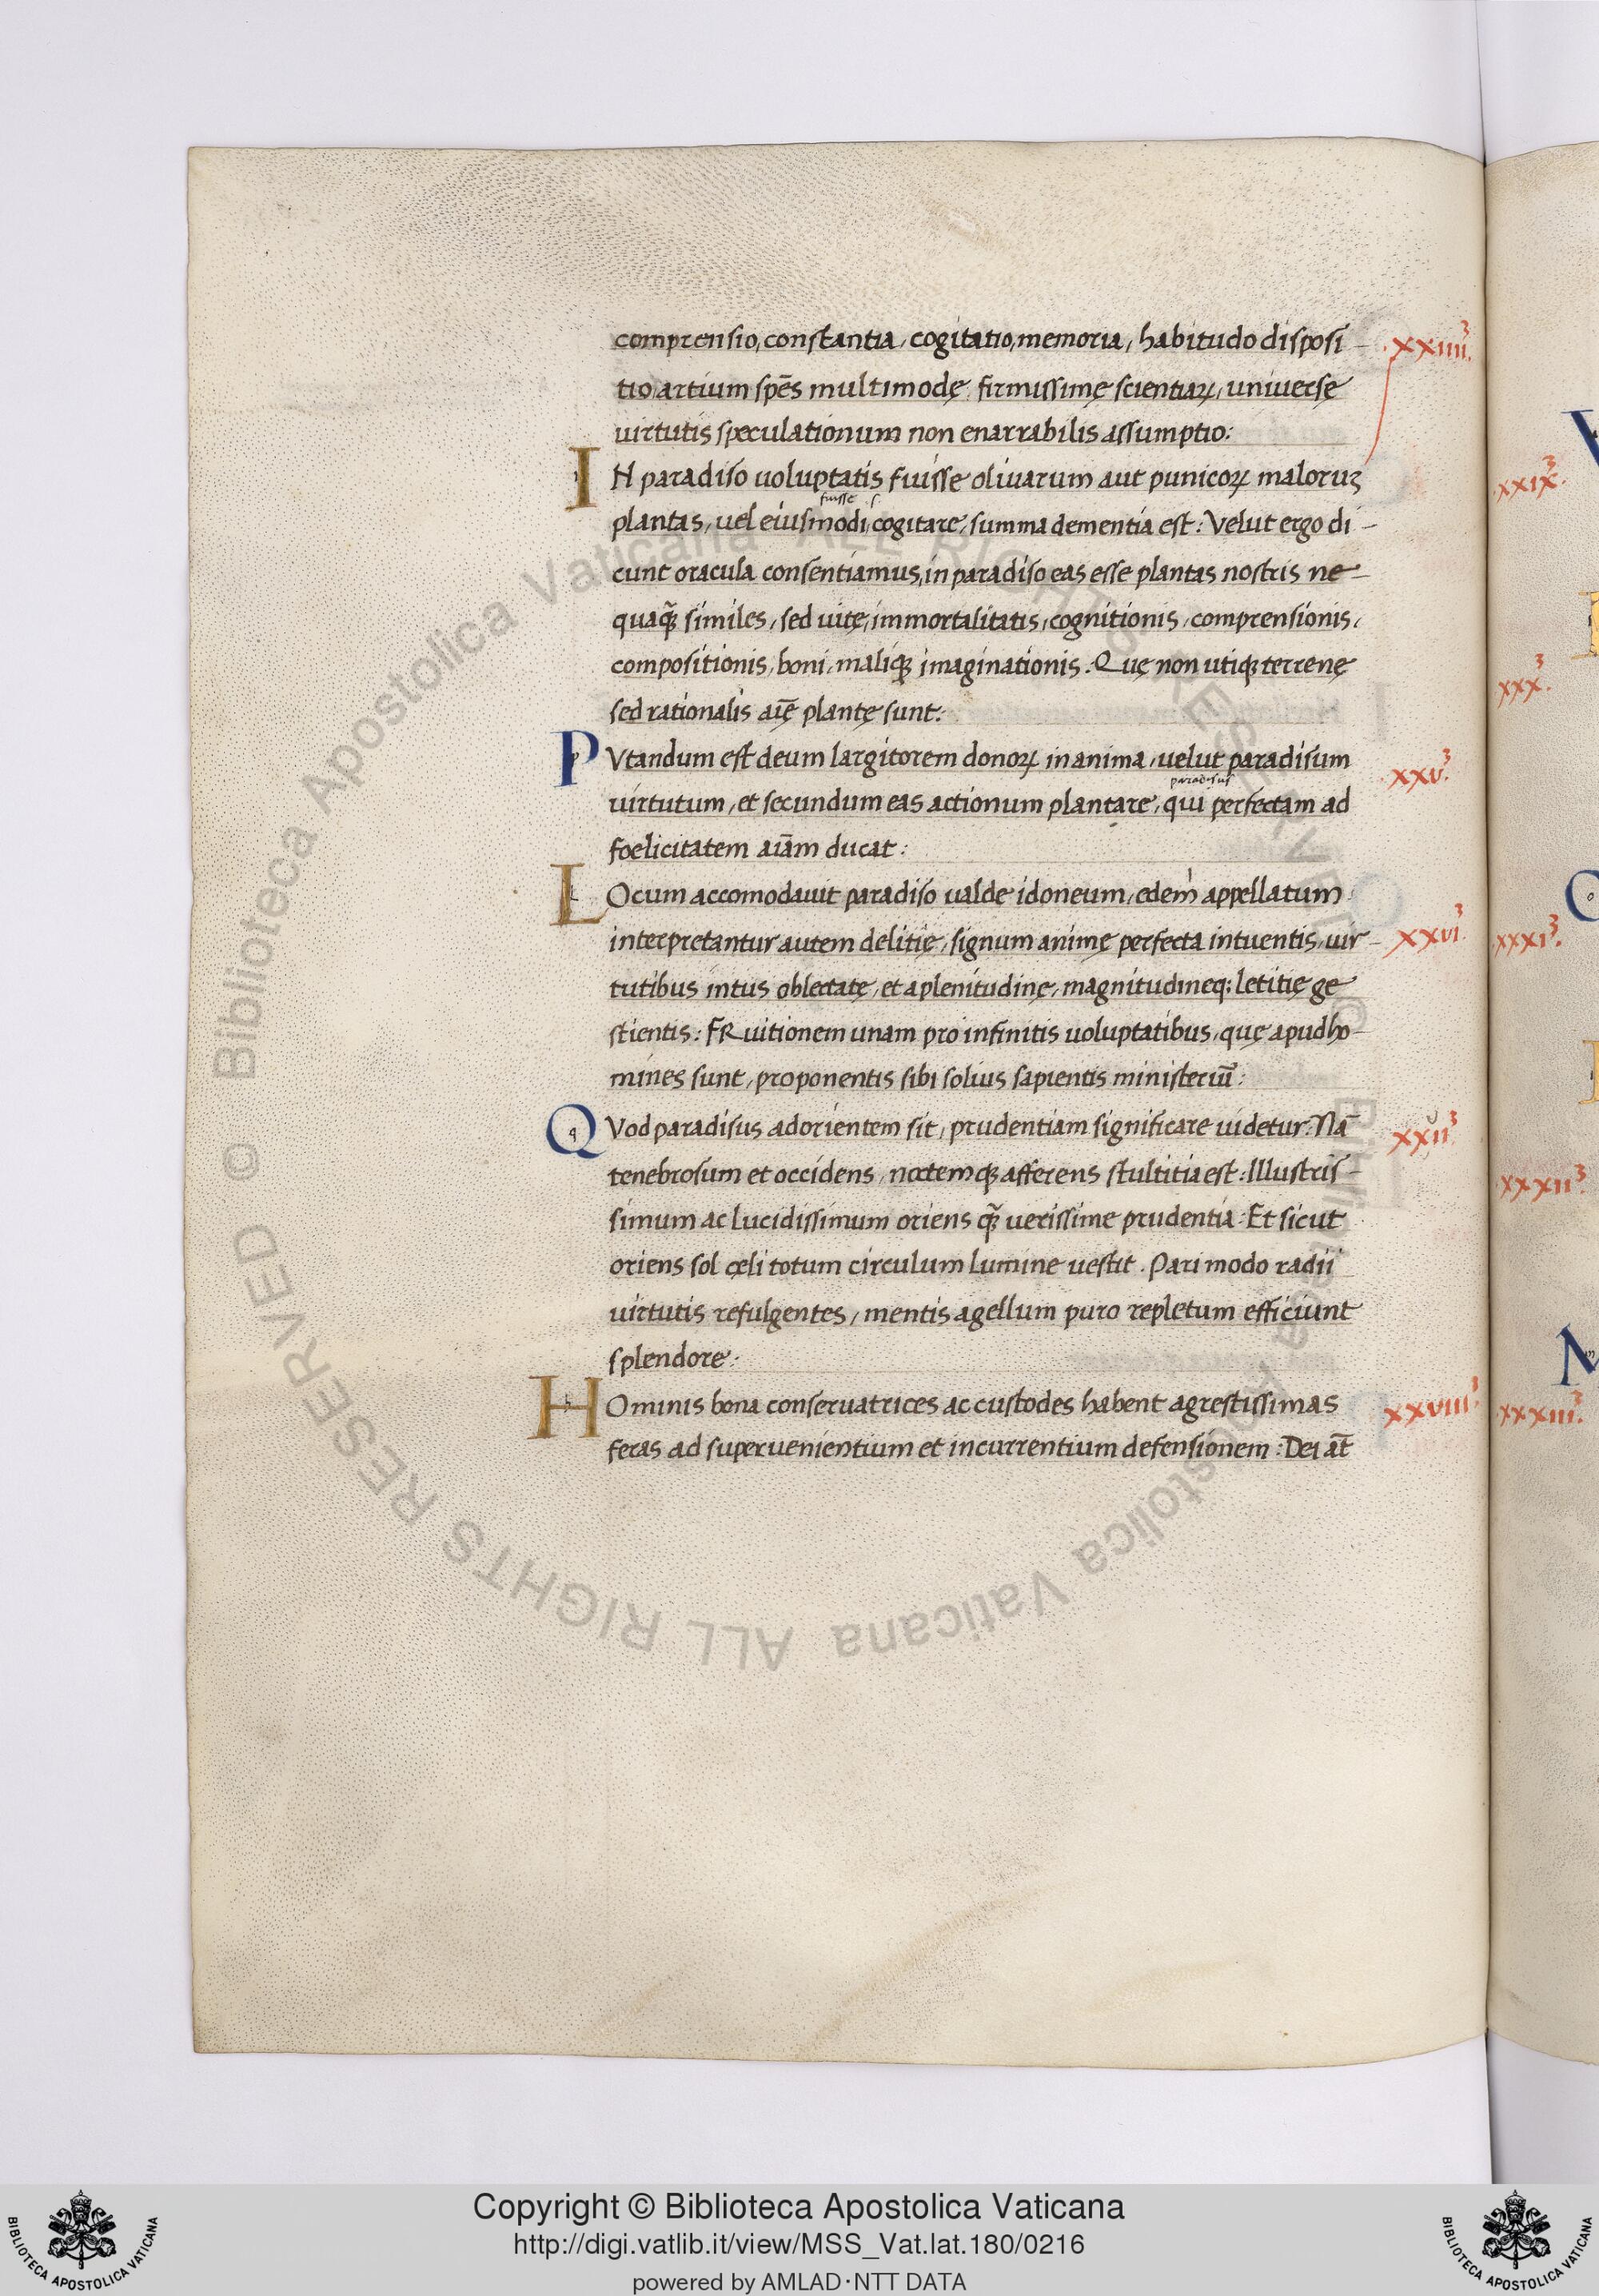 comprensio, constantia, cogitatio, memoria, habitudo disposi-
tio, artium spēs multimodę, firmissimę scientiaꝝ, universę
virtutis speculationum non enarrabilis assumptio:
IN paradiso voluptatis fuisse olivarum aut punicoꝝ maloruꝫ
fuisse .s.
plantas, vel eiusmodi cogitare, summa dementia est: Velut ergo di-
cunt oracula consentiamus, in paradiso eas esse plantas nostris ne-
quaꝙ̃ similes, sed vitę, immortalitatis, cognitionis, comprensionis,
compositionis, boni, maliqꝫ imaginationis. Quę non utiqꝫ terrenę
sed rationalis aīę plantę sunt:
PUtandum est deum largitorem donoꝝ in anima, velut paradisum
paradisus
virtutum, et secundum eas actionum plantare, qui perfectam ad
foelicitatem aīam ducat:
LOcum accomodavit paradiso valde idoneum, edem appellatum
interpretantur autem delitię, signum animę perfecta intuentis, vir-
tutibus intus oblectatę, et a plenitudinę, magnitudineq: letitię ge
stientis: FRuitionem unam pro infinitis voluptatibus, quę apud ho-
mines sunt, proponentis sibi solius sapientis ministeriū:
QUod paradisus ad orientem sit, prudentiam significare videtur: Nā
tenebrosum et occidens, noctemqꝫ afferens stultitia est: Illustris-
simum ac lucidissimum oriens ꝙ̃ verissime prudentia: Et sicut
oriens sol cęli totum circulum lumine vestit. Pari modo radii
virtutis refulgentes, mentis agellum puro repletum efficiunt
splendore:
HOminis bona conservatrices ac custodes habent agrestissimas
feras ad supervenientium et incurrentium defensionem: Dei aūt
.xxiiii.³
.xxv.³
xxvi.³
xxvii³
xxviii³
.xxix.³
xxx.³
xxxi.³
xxxii³
xxxiii.³
© Biblioteca Apostolica Vaticana ALL RIGHTS RESERVED © Biblioteca Apostolica Vaticana ALL RIGHTS RESERVED
Copyright © Biblioteca Apostolica Vaticana
http://digi.vatlib.it/view/MSS_Vat.lat.180/0216
powered by AMLAD·NTT DATA
BIBLIOTECA APOSTOLICA VATICANA
BIBLIOTECA APOSTOLICA VATICANA